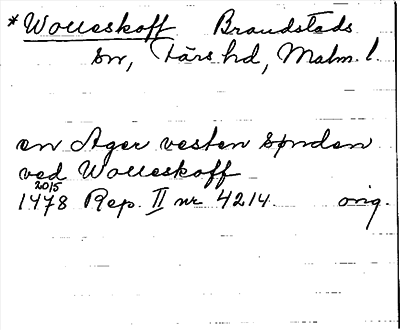 *Woueskoff Brandstads
sn, Färs hd, Malm. l.
en Ager vesten synden
ved Woueskoff
20/5
1478 Rep. II nr 4214. orig.